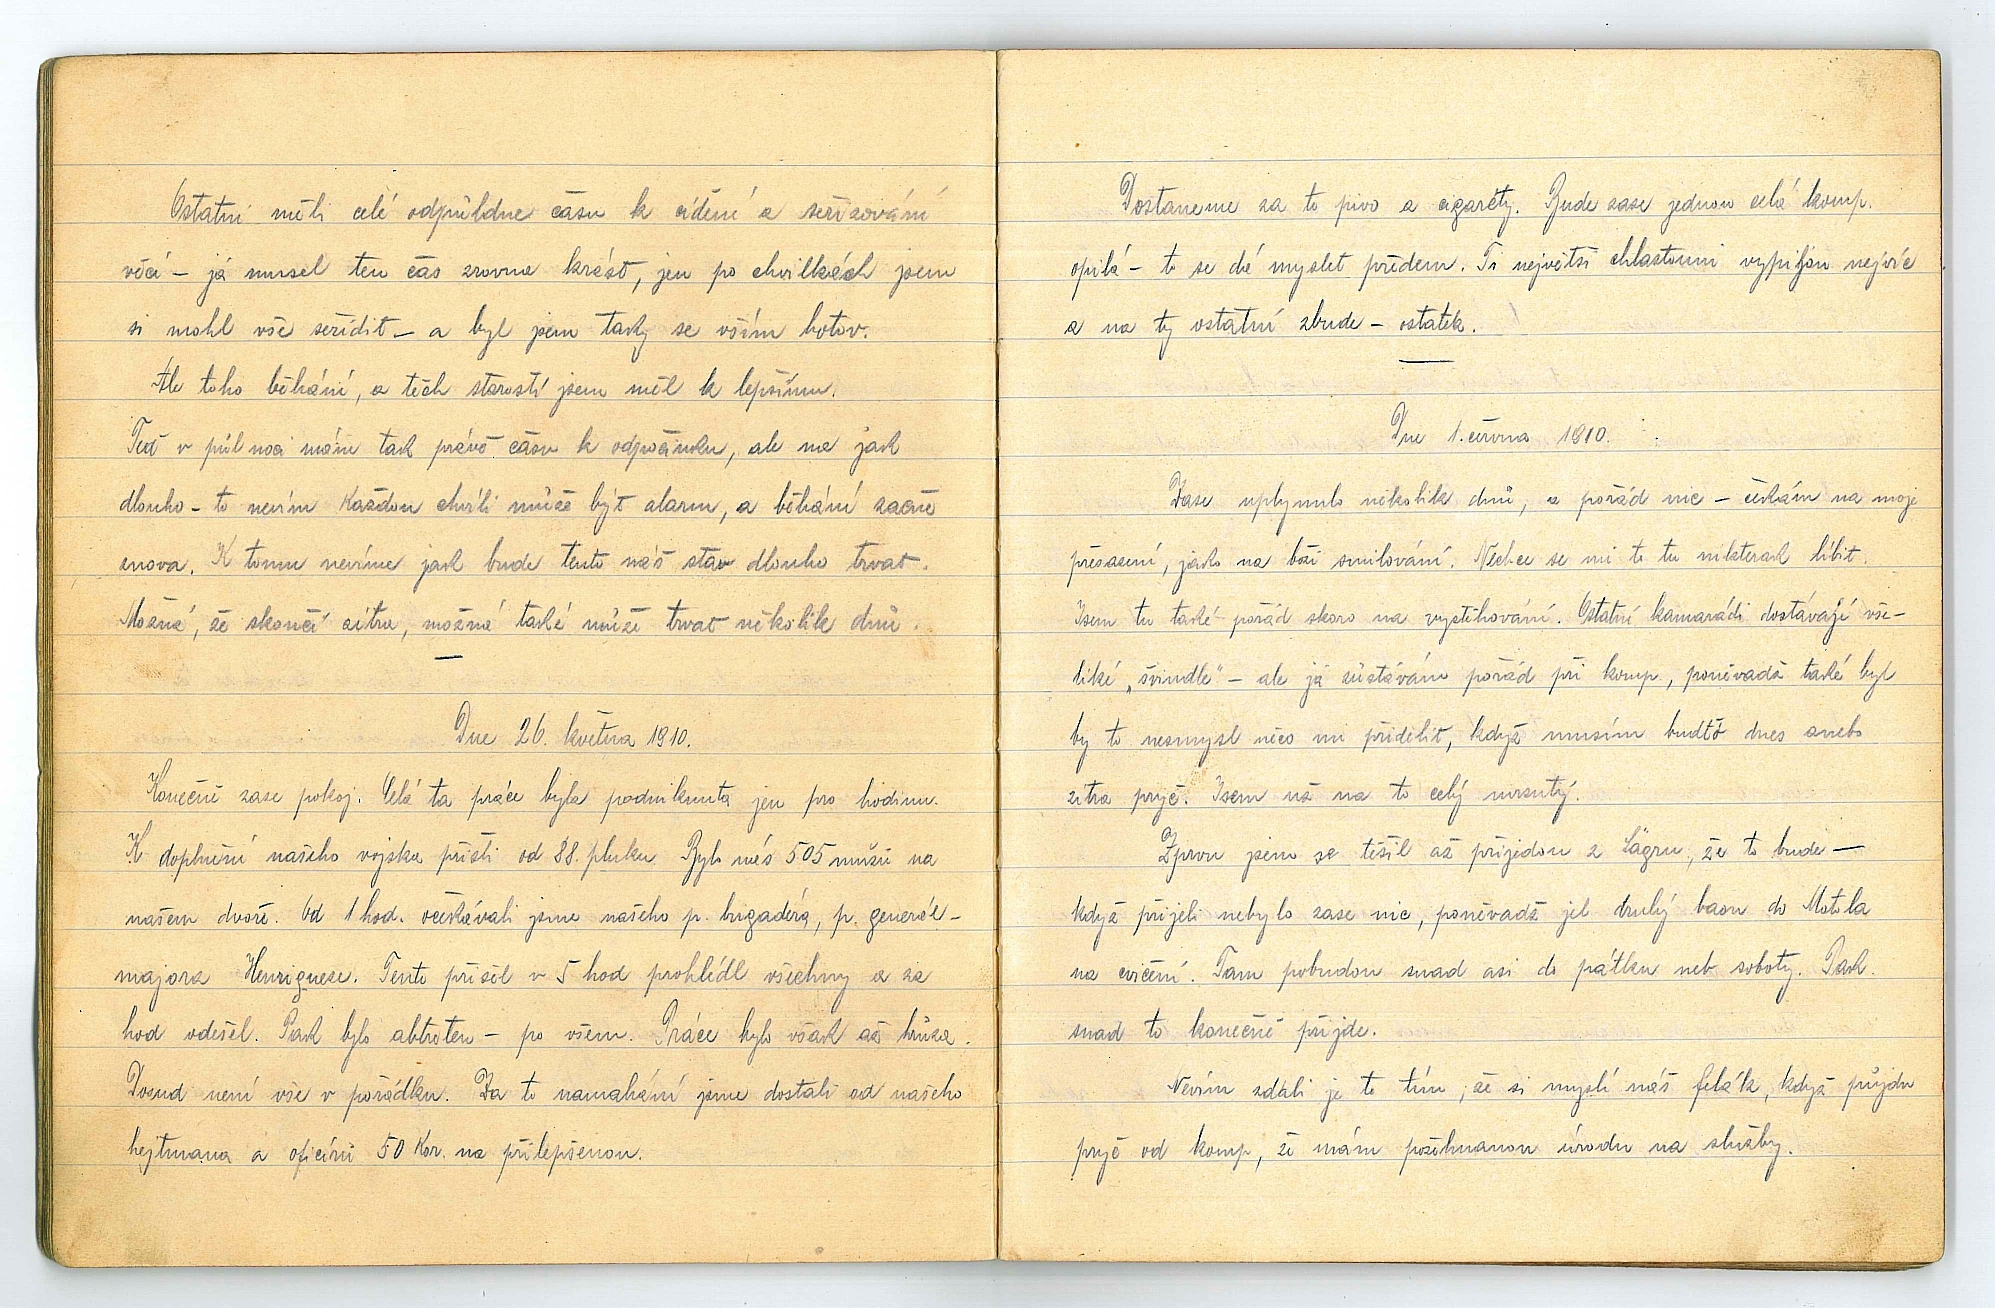 Ostatní měli celé odpůldne času k cídění a seřizování
věcí – já musel ten čas zrovna krást, jen po chvilkách jsem
si mohl vše seřídit – a byl jsem taky se vším hotov.
Ale toho běhání, a těch starostí jsem měl k lepšímu.
Teď v půl noci mám tak právě času k odpočinku, ale na jak
dlouho – to nevím každou chvíli může být alarm, a běhání začne
znova. K tomu nevíme jak bude tento náš stav dlouho trvat.
Možná, že skončí zítra, možná také může trvat několik dnů.
—
Dne 26. května 1910.
Konečně zase pokoj. Celá ta práce byla podniknuta jen pro hodinu.
K doplnění našeho vojska přišli od 88. pluku. Bylo nás 505 mužů na
našem dvoře. Od 1 hod. očekávali jsme našeho p. brigadéra, p. generál-
majora Henriquese. Tento přišel v 5 hod prohlédl všechny a za
hod odešel. Pak bylo abtreten – po všem. Práce bylo však až hrůza.
Dosud není vše v pořádku. Za to namahání jsme dostali od našeho
hejtmana a oficírů 50 Kor. na přilepšenou.
Dostaneme za to pivo a cigaréty. Bude zase jednou celá komp.
opilá – to se dá myslet předem. Ti největší chlastouni vypijou nejvíc
a na ty ostatní zbude – ostatek.
—
Dne 1. června 1910.
Zase uplynulo několik dnů, a pořád nic – čekám na moje
přesazení, jako na boží smilování. Nechce se mi to tu nikterak líbit.
Jsem tu také pořád skoro na vystěhování. Ostatní kamarádi dostávají vše-
liké „švindle" – ale já zůstávám pořád při komp., poněvadž také byl
by to nesmysl něco mi přidělit, když musím buďtő dnes anebo
zítra pryč. Jsem už na to celý mrzutý.
Zprvu jsem se těšil až přijedou z lágru, že to bude —
když přijeli nebylo zase nic, poněvadž jel druhý baon do Motola
na cvičení. Tam pobudou snad asi do pátku neb soboty. Pak.
snad to konečně přijde.
Nevím zdali je to tím, že si myslí náš felák, když půjdu
pryč od komp, že mám požehnanou úrodu na služby.